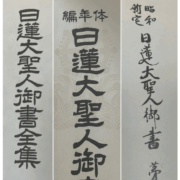 昭和
新定
日蓮大聖人御書
編年体
日蓮大聖人御
日蓮大聖人御書全集